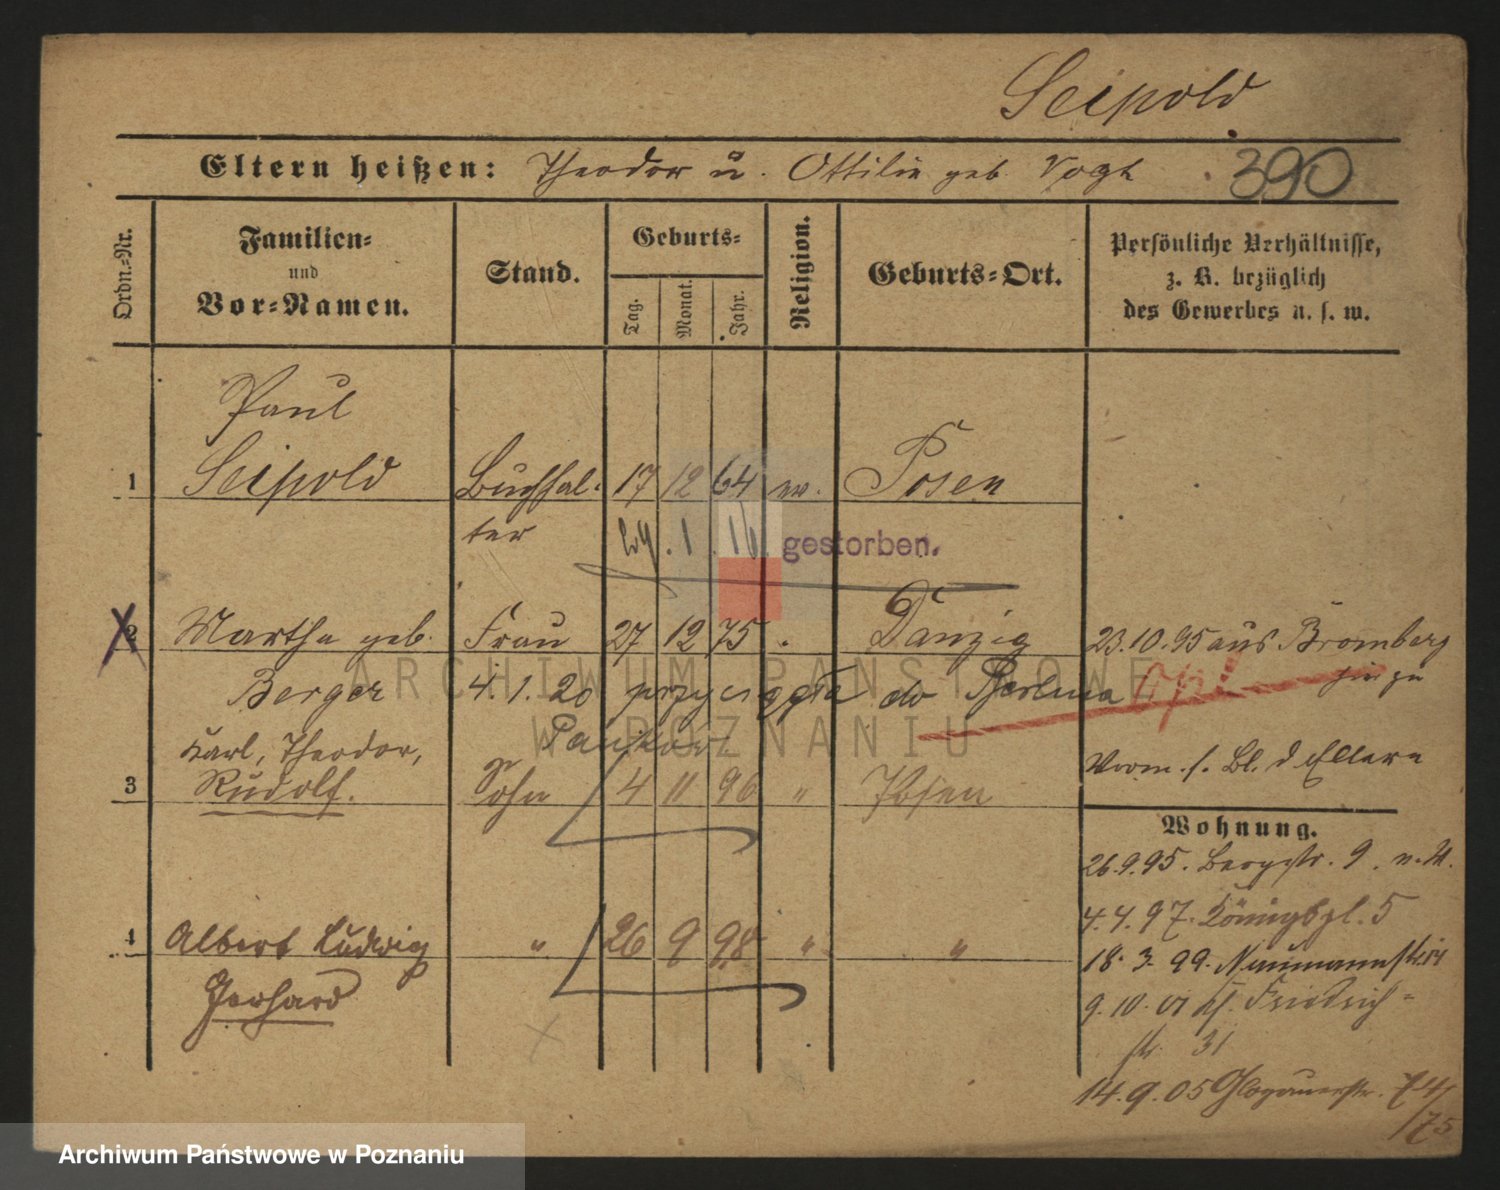 Seipold
Eltern heißen: Theodor u. Ottilie geb. Vogt 390
Ordn.-Nr.
Familien-
und
Vor-Namen.
Stand.
Geburts-
Tag.
Monat.
Jahr.
Religion.
Geburts-Ort.
Persönliche Verhältnisse,
z. B. bezüglich
des Gewerbes u. s. w.
Paul
1 Seipold Buchhal- 17 12 64 ev. Posen
ter . 1. 16. gestorben.
2 Martha geb. Frau 27 12 75 " Danzig 23.10.95 aus Bromberg
Berger 4.1.20 do Berlina
Pankow
Karl, Theodor,
3 Rudolf. Sohn 4 11 96 " Posen
Vorm. s. Bl. d Eltern
Wohnung.
26.9.95. Bergstr. 9.
4.4.97. Königspl. 5
4 Albert Ludwig " 26 9 98 " "
Gerhard
18.3.99. Naumannstr.
9.10.01 Friedrich-
str. 31
14.9.05 Glogauerstr. 74/
/75
ARCHIWUM PAŃSTWOWE
W POZNANIU
Archiwum Państwowe w Poznaniu